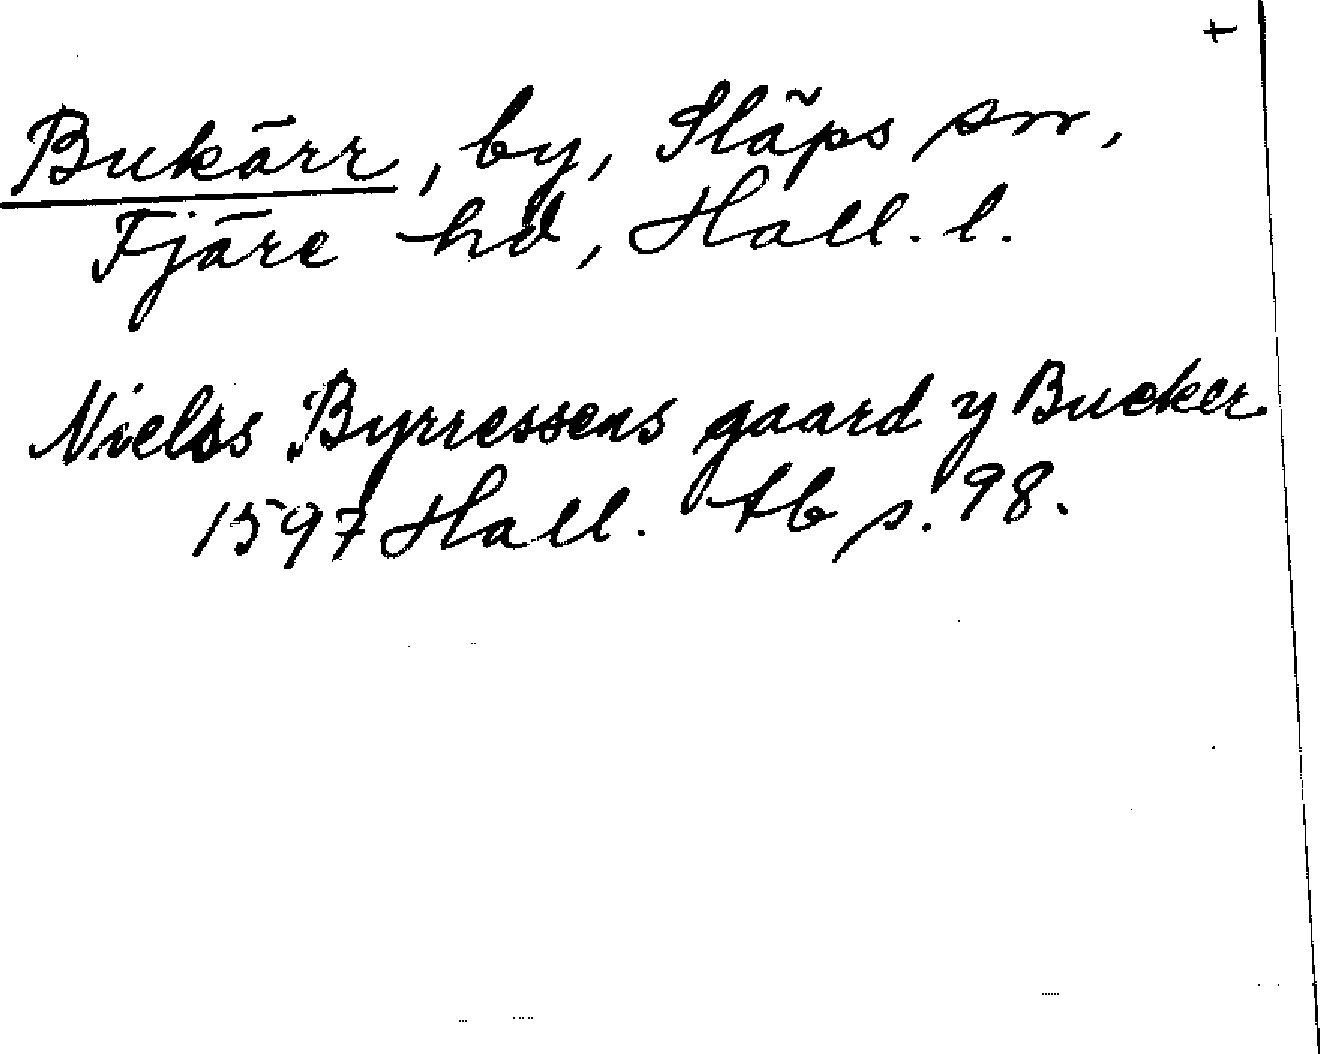 +
Bukärr, by, Släps sn,
Fjäre hd, Hall. l.
Nielss Byrressens gaard y Bucker
1597 Hall. tb p. 98.